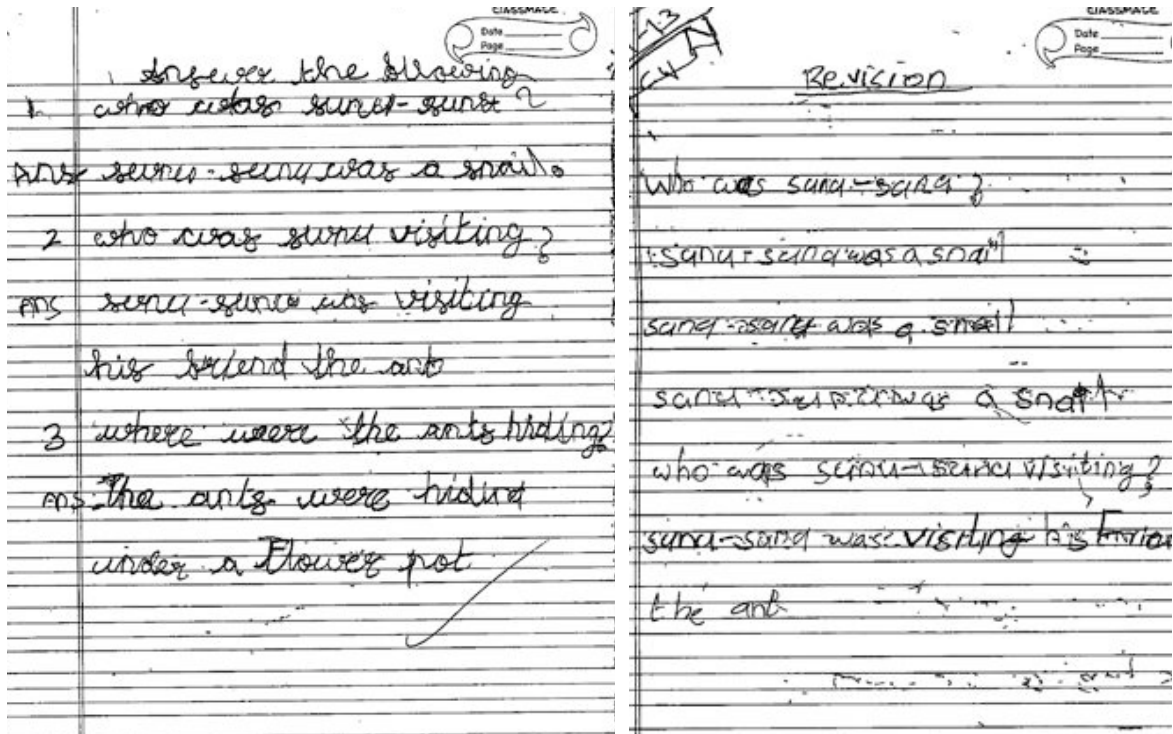 CLASSMATE
Date
Page
Answer the following
1. who was sunu-sunu?
Ans sunu-sunu was a snail.
2 who was sunu visiting?
Ans sunu-sunu was visiting
his friend the ant
3 where were the ants hiding?
Ans. The ants were hiding
under a Flower pot
CLASSMATE
Date
Page
Revision
Who was sunu-sunu?
sunu-sunu was a snail
sunu-sunu was a snail
was a snail
who was sunu-sunu visiting?
sunu-sunu was visiting his
the ant